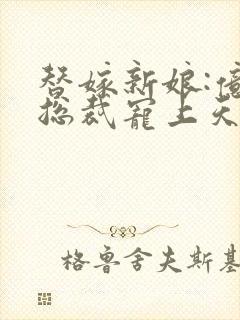 替嫁新娘:
总裁寵上天
格鲁舍夫斯基